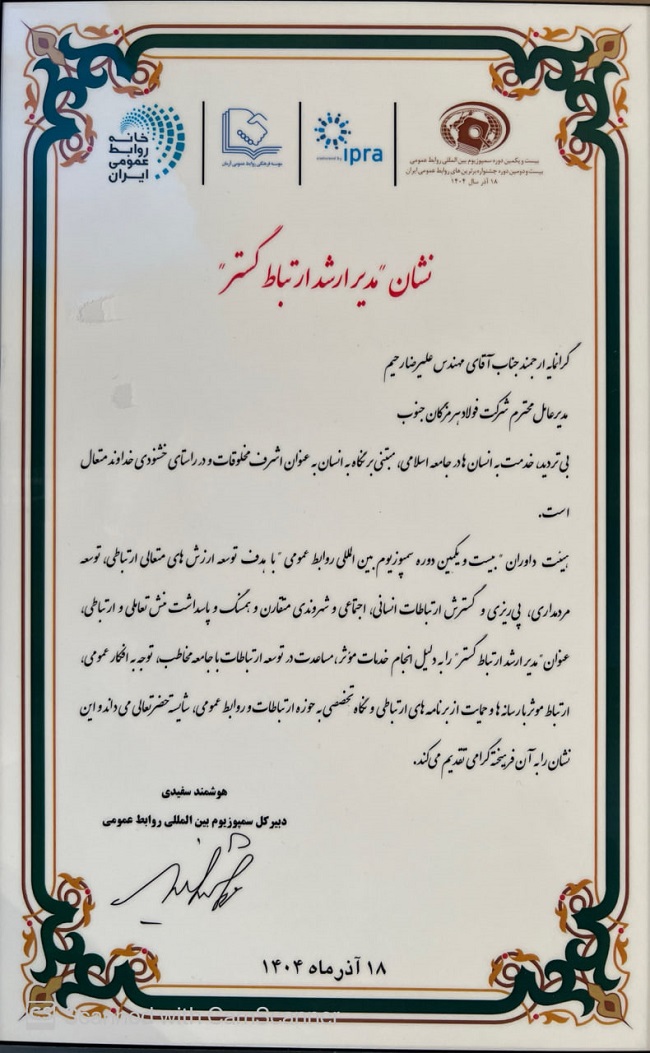 خانه
روابط
عمومی
ایران
موسسه فرهنگی روابط عمومی آرمان
ipra
بیست و یکمین دوره سمپوزیوم بین المللی روابط عمومی
بیست و دومین دوره جشنواره برترین های روابط عمومی ایران
۱۸ آذر سال ۱۴۰۴
نشان "مدیر ارشد ارتباط گستر"
گرانمایه ارجمند جناب آقای مهندس علیرضا رحیم
مدیرعامل محترم شرکت فولاد هرمزگان جنوب
بی تردید، خدمت به انسان ها در جامعه اسلامی، مبتنی بر نگاه به انسان به عنوان اشرف مخلوقات و در راستای خشنودی خداوند متعال
است.
هیئت داوران "بیست و یکمین دوره سمپوزیوم بین المللی روابط عمومی" با هدف توسعه ارزش های متعالی ارتباطی، توسعه
مردمداری، پی‌ریزی و گسترش ارتباطات انسانی، اجتماعی و شهروندی متقارن و همسنگ و پاسداشت منش تعاملی و ارتباطی،
عنوان "مدیر ارشد ارتباط گستر" را به دلیل انجام خدمات مؤثر، مساعدت در توسعه ارتباطات با جامعه مخاطب، توجه به افکار عمومی،
ارتباط موثر با رسانه ها و حمایت از برنامه های ارتباطی و نگاه تخصصی به حوزه ارتباطات و روابط عمومی، شایسته حضرتعالی می داند و این
نشان را به آن فرهیخته گرامی تقدیم می کند.
هوشمند سفیدی
دبیر کل سمپوزیوم بین المللی روابط عمومی
۱۸ آذر ماه ۱۴۰۴
Scanned with CamScanner